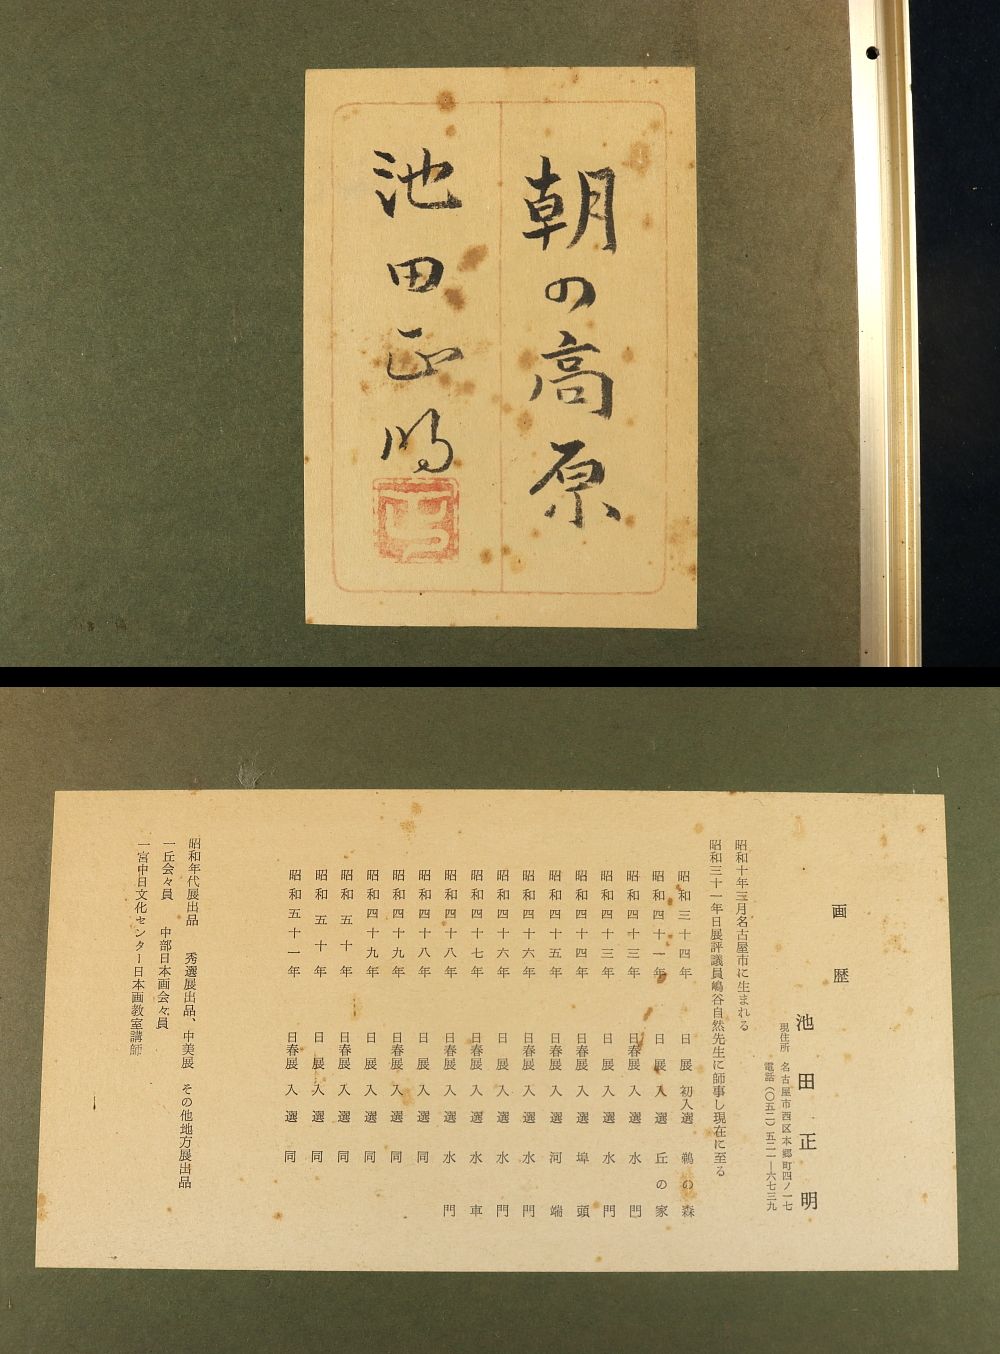 朝の高原
池田正明
画歴
池田正明
現住所 名古屋市西区本郷町四ノ一七
電話(〇五二)五二一―六七三九
昭和十年三月名古屋市に生まれる
昭和三十一年日展評議員嶋谷自然先生に師事し現在に至る
昭和三十四年 日展 初入選 鵜の森
昭和四十一年 日展 入選 丘の家
昭和四十三年 日春展 入選 水門
昭和四十三年 日展 入選 水門
昭和四十四年 日春展 入選 埠頭
昭和四十五年 日春展 入選 河端
昭和四十六年 日春展 入選 水門
昭和四十六年 日展 入選 水門
昭和四十七年 日春展 入選 水車
昭和四十八年 日春展 入選 水門
昭和四十八年 日展 入選 同
昭和四十九年 日春展 入選 同
昭和四十九年 日展 入選 同
昭和五十年 日春展 入選 同
昭和五十年 日展 入選 同
昭和五十一年 日春展 入選 同
昭和年代展出品 秀選展出品、中美展 その他地方展出品
一丘会々員 中部日本画会々員
一宮中日文化センター日本画教室講師